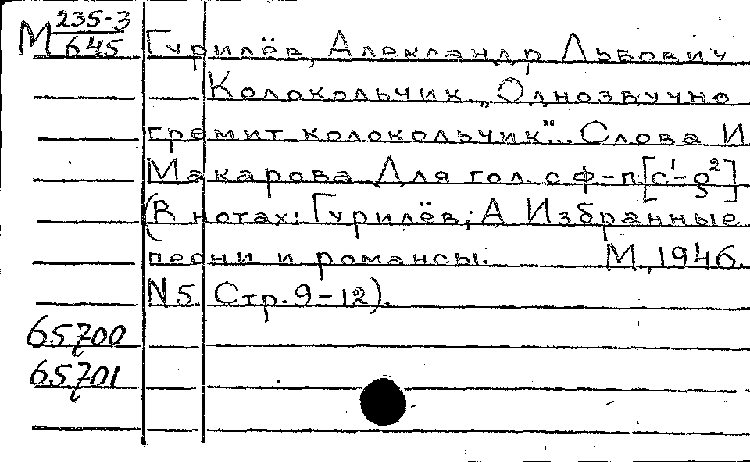 М 235-3/645 Гурилёв, Александр Львович
Колокольчик. „Однозвучно
гремит колокольчик". Слова И
Макарова Для гол. с ф-п. [c¹-g²]
(В нотах: Гурилёв, А Избранные
песни и романсы. М, 1946.
N 5. Стр. 9-12).
65700
65701